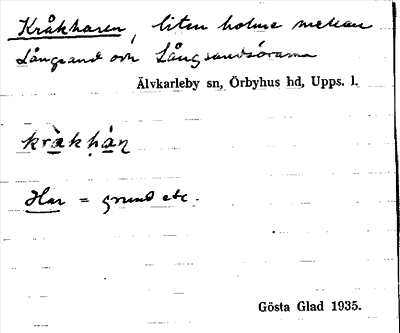 Kråkharen, liten holme mellan
Långsand och Långsandsörarna
Älvkarleby sn, Örbyhus hd, Upps. l.
kråkhán
Har = grund etc.
Gösta Glad 1935.